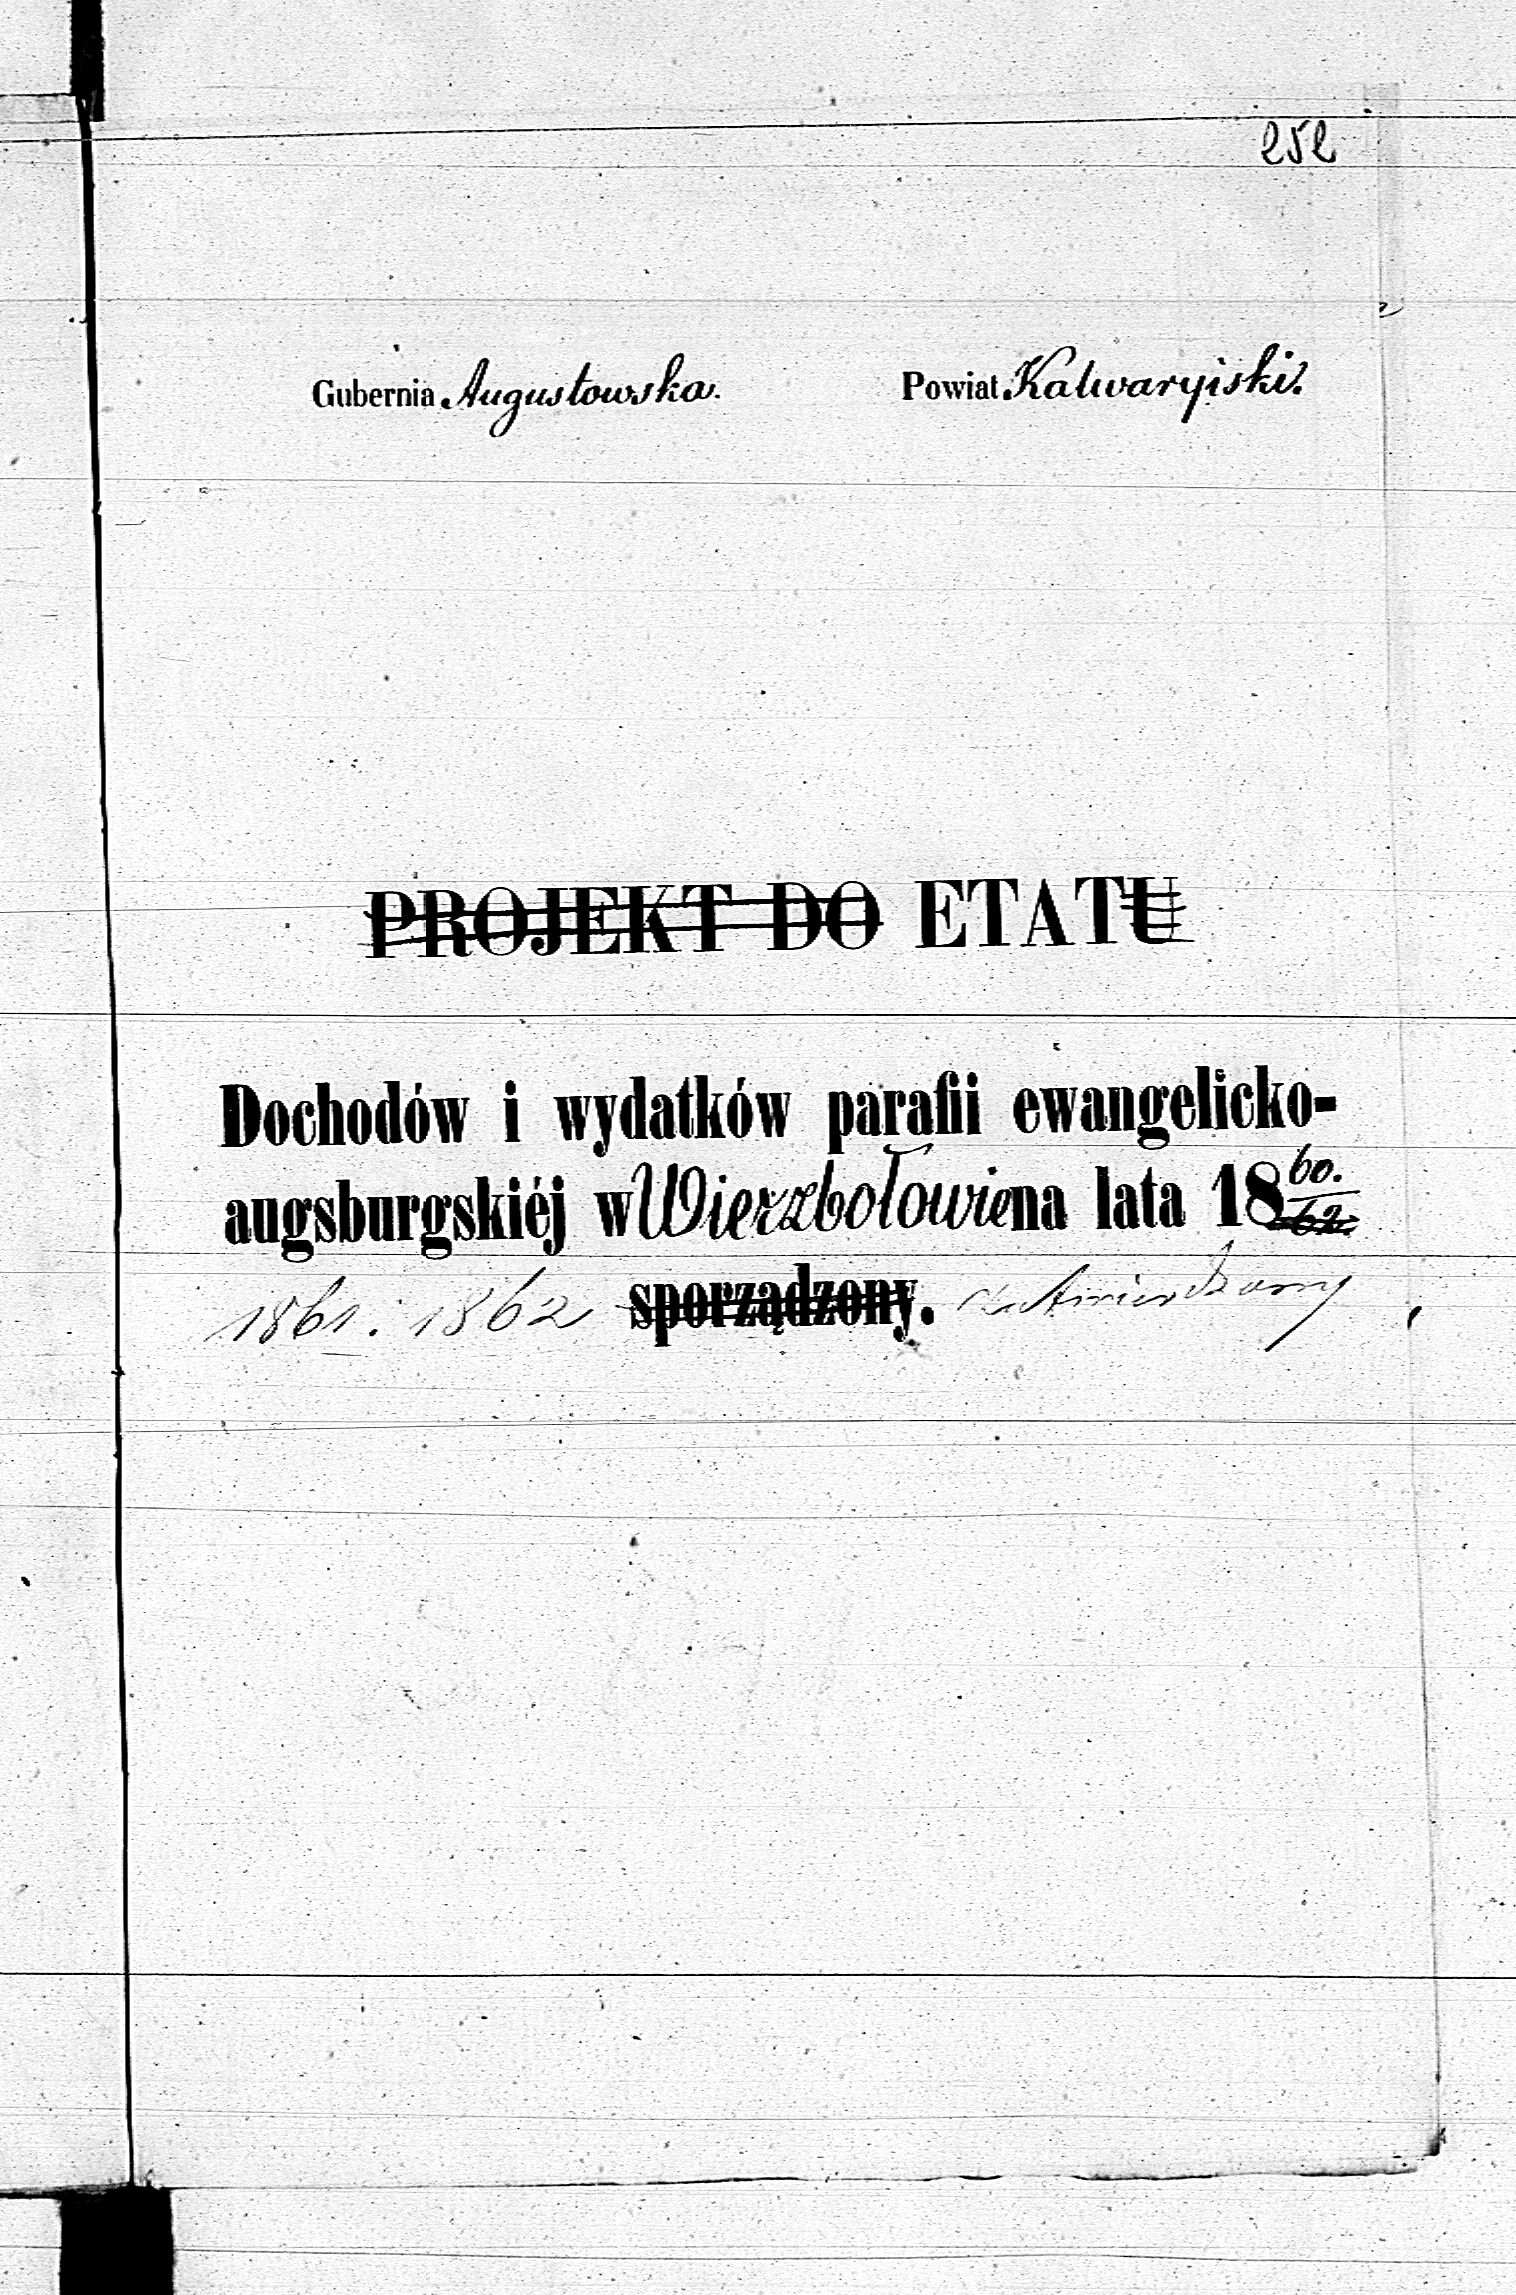 252
Gubernia Augustowska. Powiat Kalwaryiski.
PROJEKT DO ETATU
Dochodów i wydatków parafii ewangelicko-
augsburgskiéj w Wierzbołowie na lata 18 60. / 62.
1861 i 1862 sporządzony. zatwierdzony